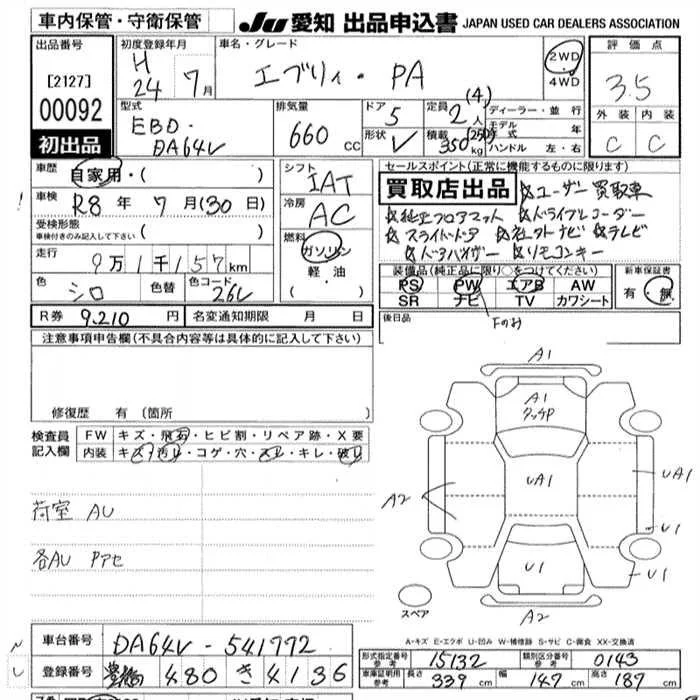 車内保管・守衛保管
JU 愛知 出品申込書 JAPAN USED CAR DEALERS ASSOCIATION
出品番号
[2127]
00092
初出品
初度登録年月
H 24 7月
車名・グレード
エブリィ・PA
2WD
4WD
評価点
3.5
外装 内装
C C
型式
EBD-
DA64V
排気量
660 CC
ドア 5
形状 V
定員 2人 (4)
積載 350kg (250)
ディーラー・並行
モデル年式 年
ハンドル 左・右
車歴
自家用・( )
車検
R8年 7月(30日)
受検形態
車検付きのみ記入して下さい ( )
走行
9万1千157km
色 シロ 色替 色コード 26U
シフト
IAT
冷房
AC
燃料
ガソリン
軽油
( ・ )
セールスポイント(正常に機能するものに限ります)
買取店出品 ☆ユーザー買取車
☆純正フロアマット ☆ドライブレコーダー
☆スライドドア ☆社外ナビ ☆テレビ
☆ドアバイザー ☆リモコンキー
装備品(純正品に限り○をつけてください)
PS PW エアB AW
SR ナビ TV カワシート
Fのみ
新車保証書
有・無
R券 9.210円 名変通知期限 月 日
後日品
注意事項申告欄(不具合内容等は具体的に記入して下さい)
修復歴 有 〔箇所
検査員記入欄
FW キズ・飛石・ヒビ割・リペア跡・X要
内装 キズ・汚れ・コゲ・穴・スレ・キレ・破れ
荷室 AU
各AU Pアセ
A1
A1
タッチP
UA1
UA1
A2
U1
U1
U1
A2
スペア
A-キズ E-エクボ U-凹み W-補修跡 S-サビ C-腐食 XX-交換済
車台番号 DA64V-541772
登録番号 豊橋 480 き 4136
形式指定番号 参考 15132
類別区分番号 参考 0143
車庫証明用 参考 長さ 339cm 幅 147cm 高さ 187cm